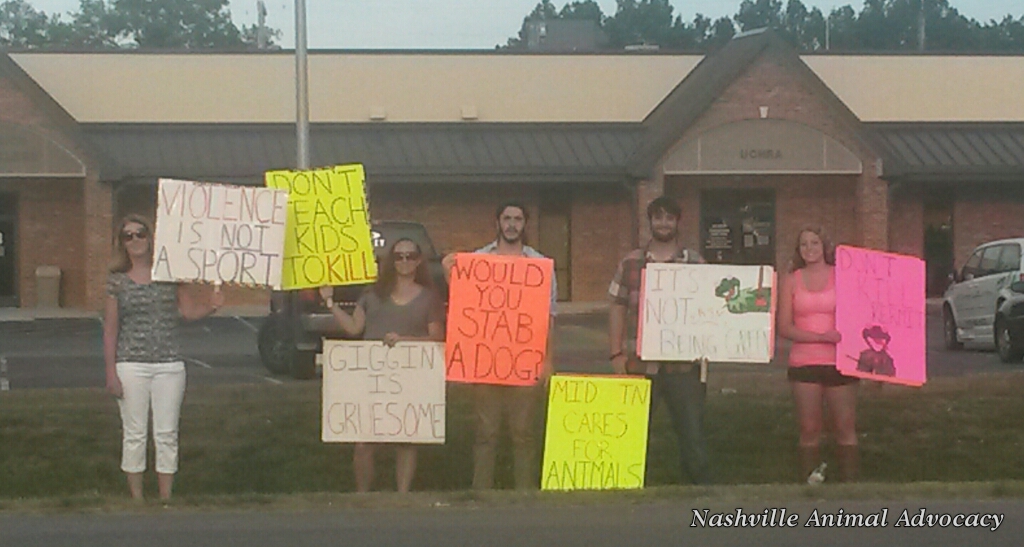 UCHRA
VIOLENCE
IS NOT
A SPORT
DON'T
TEACH
KIDS
TO KILL
GIGGIN
IS
GRUESOME
WOULD
YOU
STAB
A DOG?
MID TN
CARES
FOR
ANIMALS
IT'S
NOT EASY
BEING GREEN
DON'T
KILL
KERMIT
Nashville Animal Advocacy